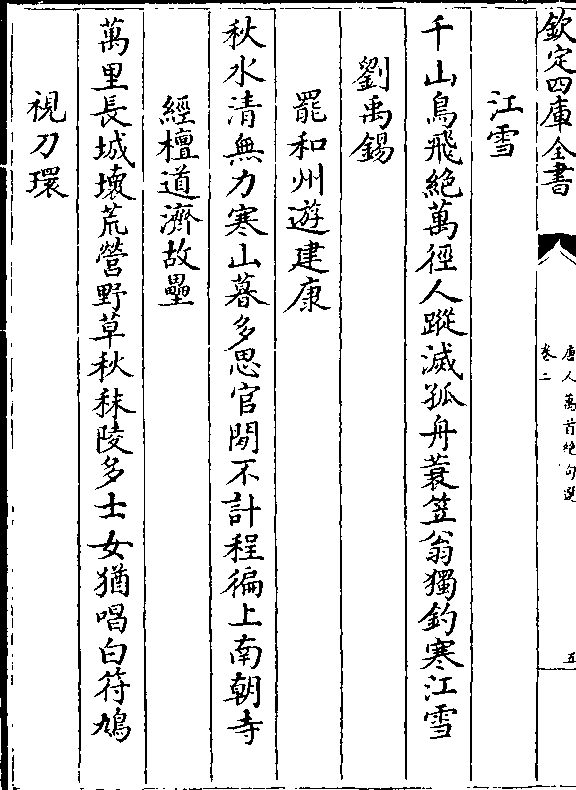 欽定四庫全書
唐人萬首絶句選
卷二
五
江雪
千山鳥飛絶萬徑人蹤滅孤舟蓑笠翁獨釣寒江雪
劉禹錫
罷和州遊建康
秋水清無力寒山暮多思官閒不計程徧上南朝寺
經檀道濟故壘
萬里長城壞荒營野草秋秣陵多士女猶唱白符鳩
視刀環